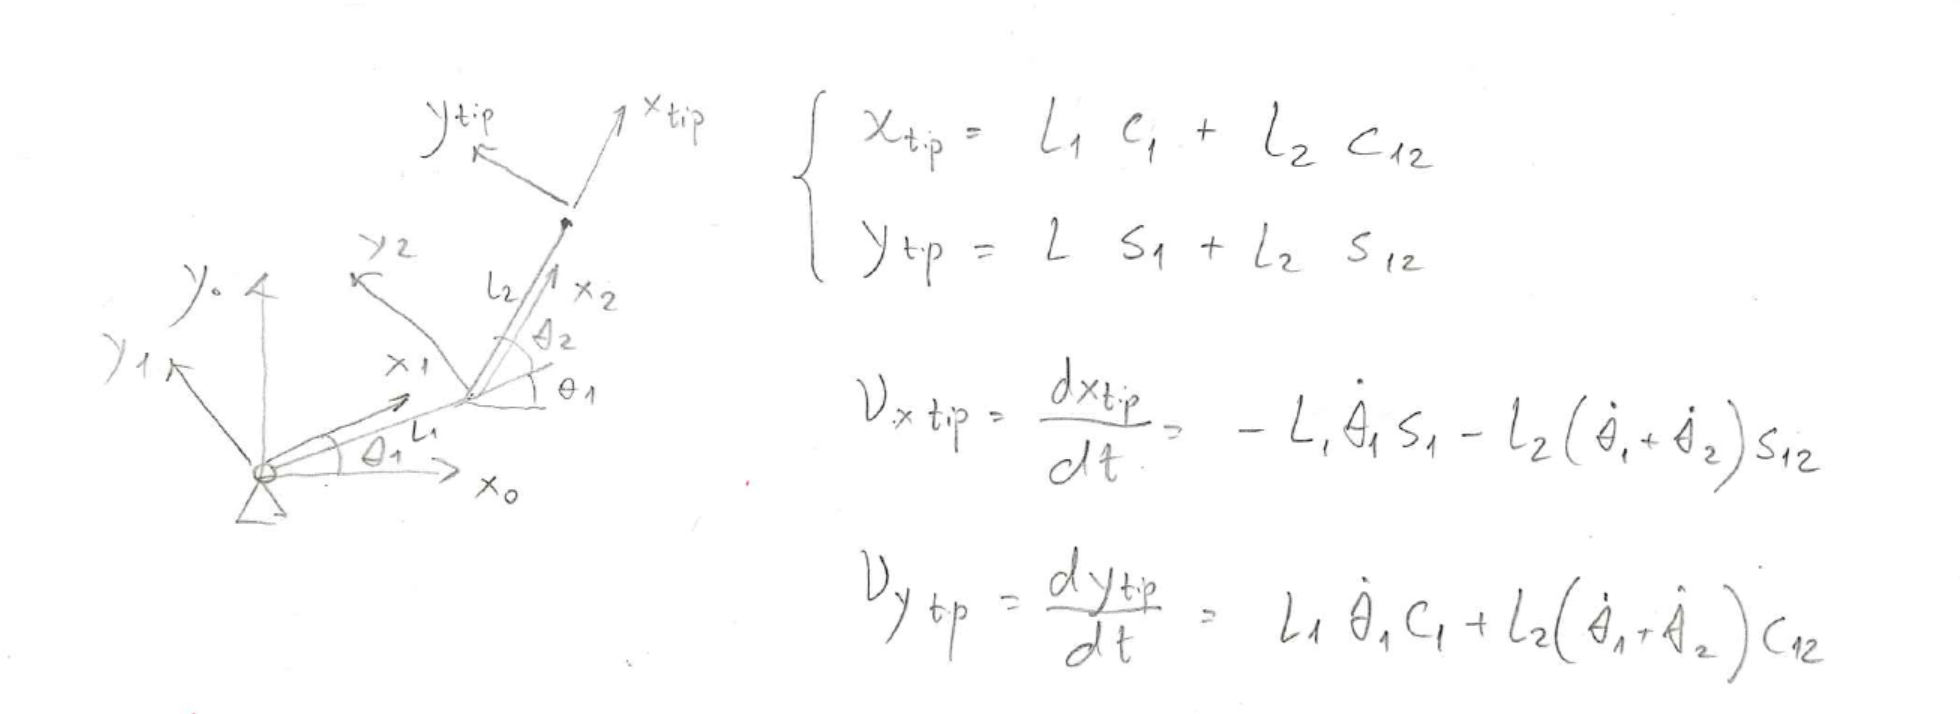 y tip
x tip
y2
L2
x2
y0
θ2
y1
x1
θ1
L1
θ1
x0
x tip = L1 C1 + L2 C12
y tip = L S1 + L2 S12
Vx tip = dx tip / dt = - L1 θ̇1 S1 - L2 (θ̇1 + θ̇2) S12
Vy tip = dy tip / dt = L1 θ̇1 C1 + L2 (θ̇1 + θ̇2) C12